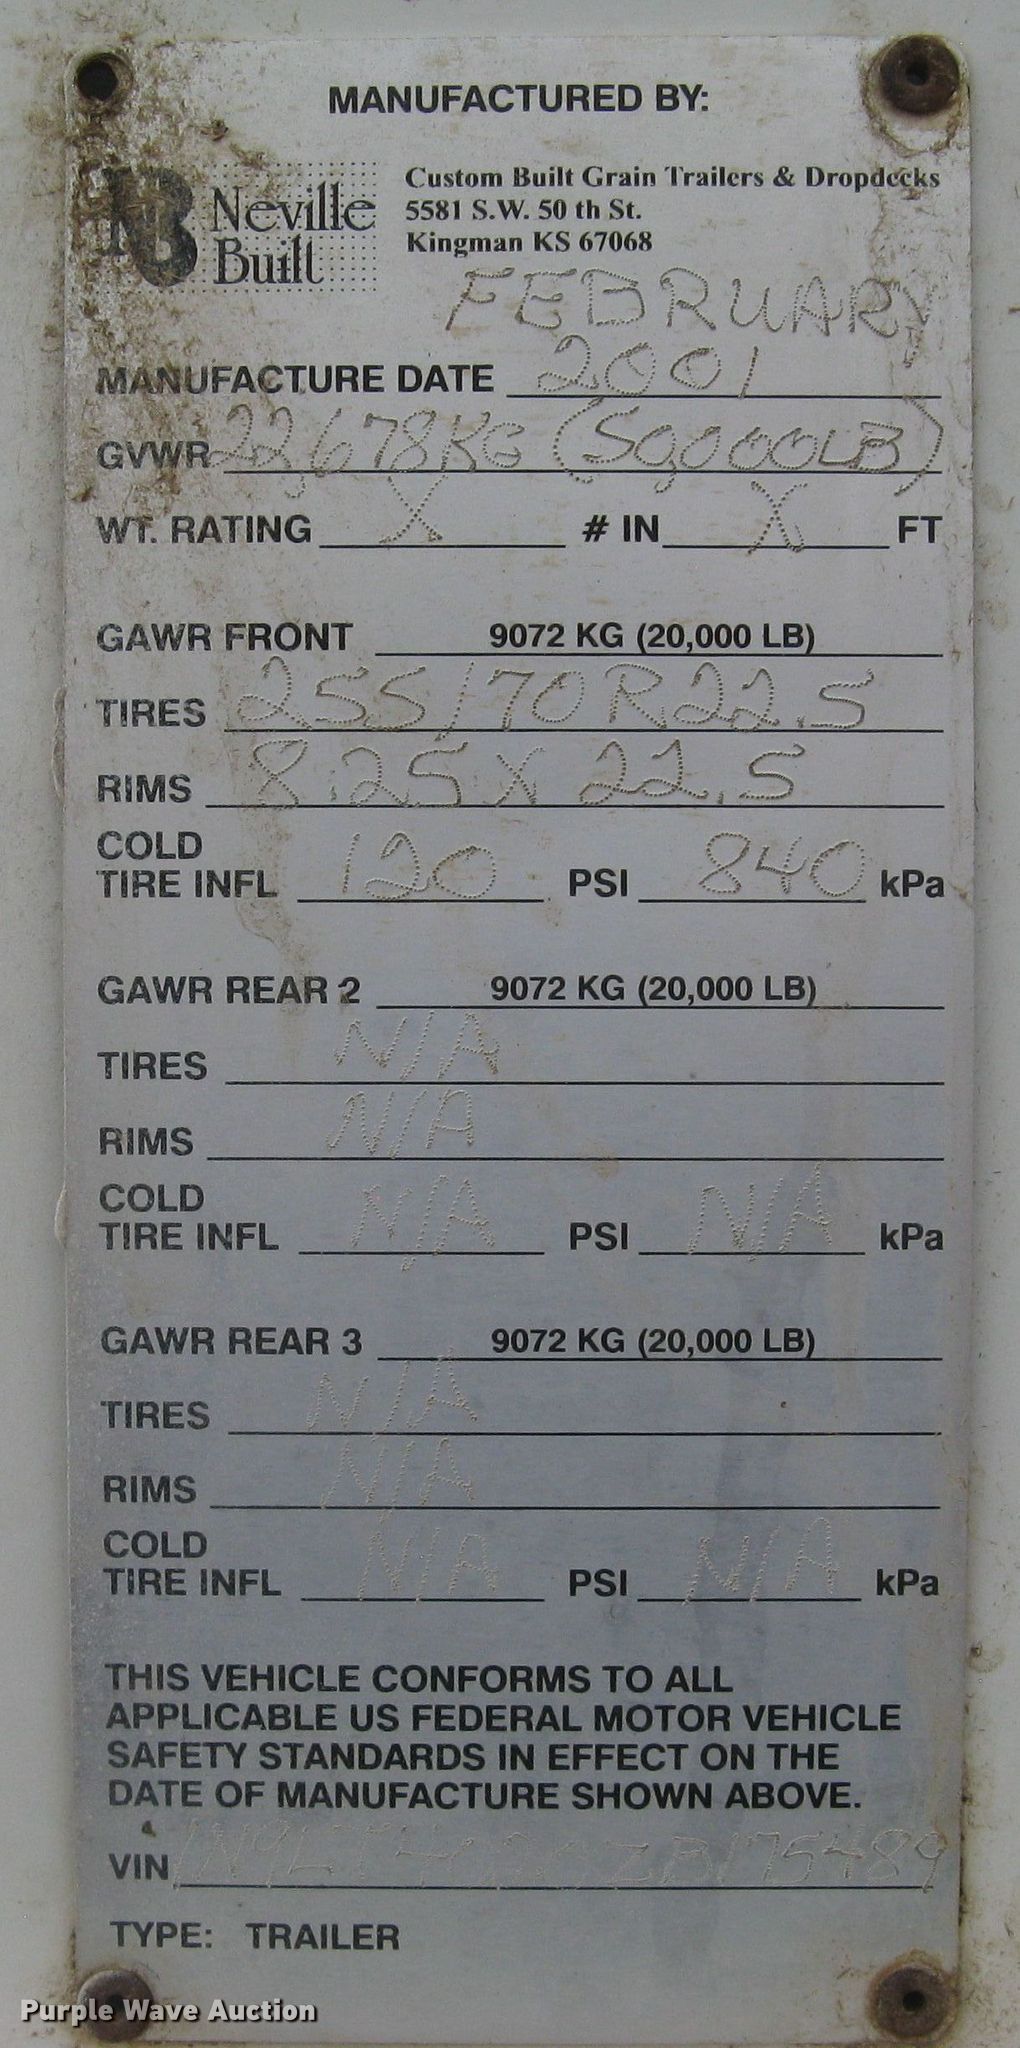 MANUFACTURED BY:
NB Neville Built
Custom Built Grain Trailers & Dropdecks
5581 S.W. 50 th St.
Kingman KS 67068
FEBRUARY
MANUFACTURE DATE 2001
GVWR 22,678KG (50,000LB)
WT. RATING X # IN X FT
GAWR FRONT 9072 KG (20,000 LB)
TIRES 255/70R22.5
RIMS 8.25 X 22.5
COLD
TIRE INFL 120 PSI 840 kPa
GAWR REAR 2 9072 KG (20,000 LB)
TIRES N/A
RIMS N/A
COLD
TIRE INFL N/A PSI N/A kPa
GAWR REAR 3 9072 KG (20,000 LB)
TIRES N/A
RIMS N/A
COLD
TIRE INFL N/A PSI N/A kPa
THIS VEHICLE CONFORMS TO ALL
APPLICABLE US FEDERAL MOTOR VEHICLE
SAFETY STANDARDS IN EFFECT ON THE
DATE OF MANUFACTURE SHOWN ABOVE.
VIN
TYPE: TRAILER
Purple Wave Auction